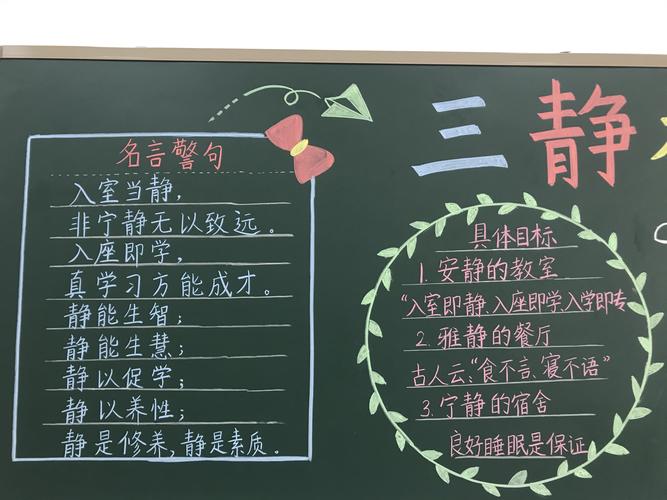 三静
名言警句
入室当静，
非宁静无以致远。
入座即学，
真学习方能成才。
静能生智；
静能生慧；
静以促学；
静以养性；
静是修养，静是素质。
具体目标
1.安静的教室
“入室即静、入座即学、入学即专
2.雅静的餐厅
古人云：“食不言、寝不语”
3.宁静的宿舍
良好睡眠是保证